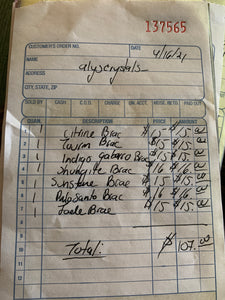 137565
CUSTOMER'S ORDER NO. DATE 4/16/21
NAME alyscrystals
ADDRESS
CITY, STATE, ZIP
SOLD BY CASH C.O.D. CHARGE ON. ACCT. MDSE. RETD. PAID OUT
QUAN. DESCRIPTION PRICE AMOUNT
1 1 Citrine Brac $15 $15.00
2 1 Tourm Brac $15 $15.00
3 1 Indigo Gabbro Brac $15 $15.00
4 1 Shungite Brac $16 $16.00
5 1 Sunstone Brac $15 $15.00
6 1 Palo Santo Brac $16 $16.00
7 1 Jade Brac $15 $15.00
8
9
10 Total: $107.00
11
12